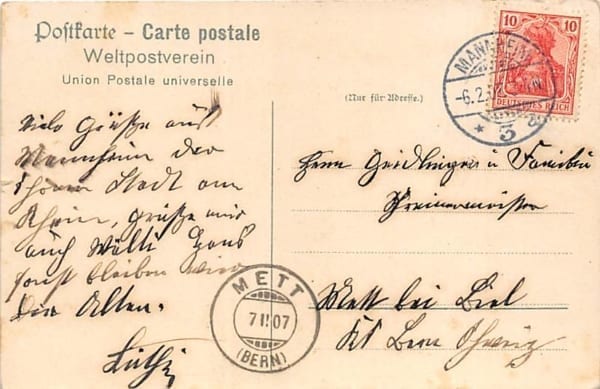 Postkarte – Carte postale
Weltpostverein
Union Postale universelle
Viele Grüße aus
Mannheim der
schönen Stadt am
Rhein, Grüße mir
auch Wälti Hans
sonst bleiben wir
die Alten.
Lüthi
METT
7 II 07
(BERN)
10 10
DEUTSCHES REICH
MANNHEIM
-6.2.
* 3
(Nur für Adresse.)
Herrn Geidlinger u Familie
Schreinermeister
Mett bei Biel
Kt Bern Schweiz